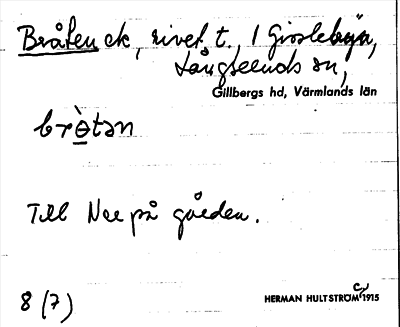 Bråten ck, rivet, t. 1 Gisslebyn,
Långseruds sn,
Gillbergs hd, Värmlands län
bròtən
Till Nee på gården.
8 (7)
HERMAN HULTSTRÖM 1915